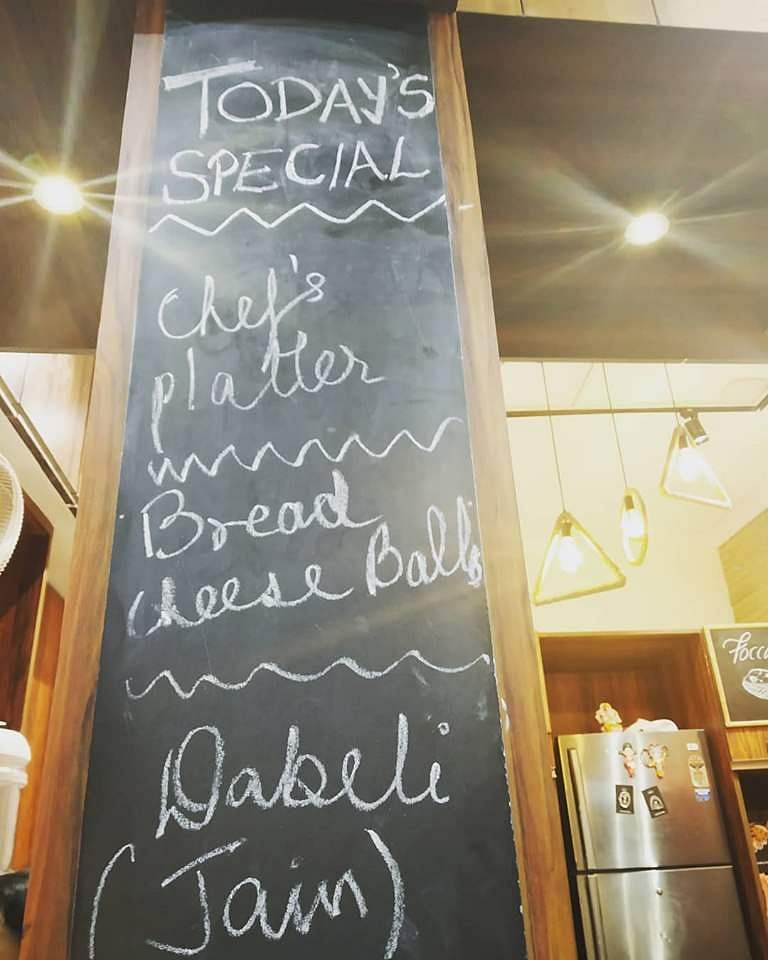 TODAY'S
SPECIAL
Chef's
platter
Bread
cheese Balls
Dabeli
(Jain)